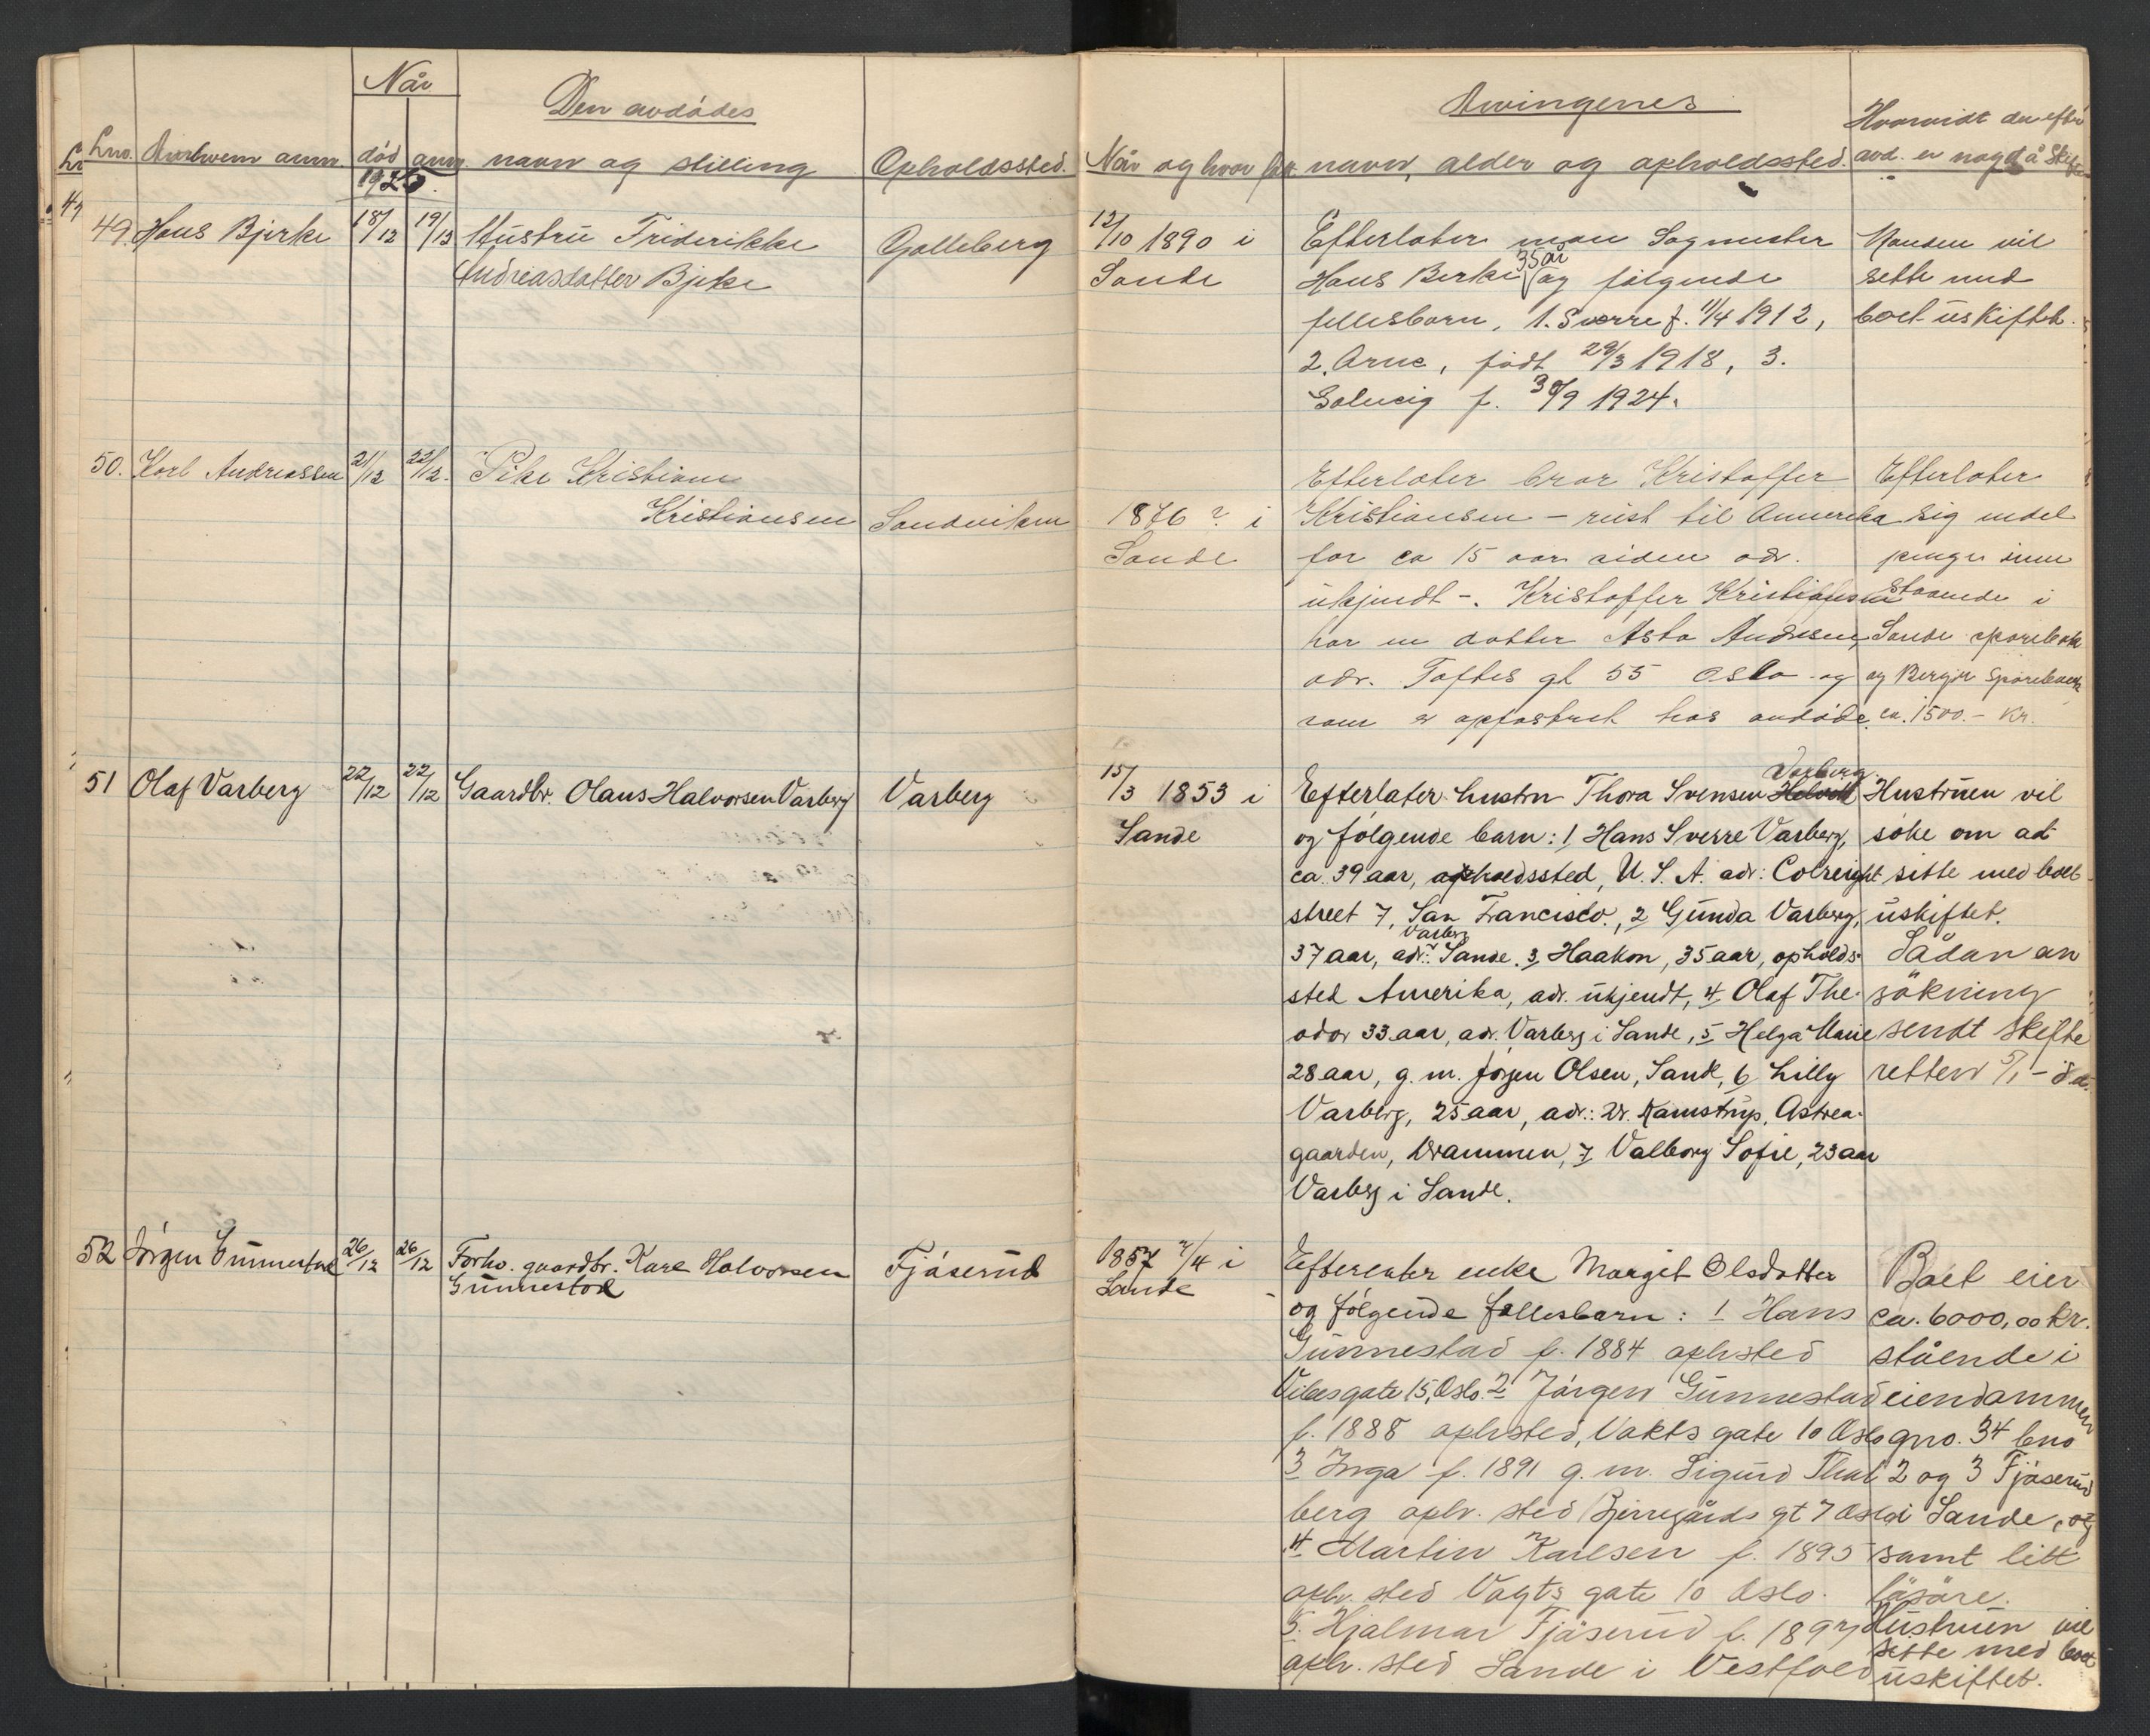 Når
Den avdødes
Lno. død anm. navn og stilling Opholdssted.
1925.
49. Hans Bjerke 18/12 19/12 Hustru Friderikke Galleberg
Andreasdatter Bjeke
50. Karl Andreassen 21/12 22/12. Pike Kristiane
Kristiansen Sandviken
51 Olaf Varberg 22/12 22/12 Gaardbr. Olaus Halvorsen Varberg Varberg
52 Jörgen Gunnestad 26/12 26/12 Forhv. gaardbr. Karl Halvorsen Fjåserud
Gunnestad
Arvingenes
Hvorvidt den efter
Når og hvor født navn, alder og opholdssted. avd. er nogd å Skifte
12/10 1890 i Efterlater man Sagmester Manden vil
35 år
Sande Hans Berke og følgende sitte med
fellesbarn, 1. Sverre f. 11/4 1912, boet uskiftet.
2. Arne, født 29/3 1918, 3.
Solveig f. 30/9 1924.
Efterlater bror Kristoffer Efterlater
1876? i Kristiansen – reist til Amerika sig endel
Sande for ca 15 aar siden adr. penger inne
ukjendt -. Kristoffer Kristiansen staaende i
har en datter Asta Andresen, Sande sparebank
adr. Toftes gt 55 Oslo og og Berger Sparebank
som er opfostret hos avdøde. ca. 1500.- Kr.
Varberg.
15/3 1853 i Efterlater hustru Thora Svensen Hustruen vil
Sande og følgende barn: 1, Hans Sverre Varberg, søke om at
ca. 39 aar, opholdssted, U.S.A. adr: sitte med boet
street 7, San Francisco., 2 Gunda Varberg, uskiftet.
Varberg
37 aar, adr: Sande. 3, Haakon, 35 aar, opholds- Sådan an
sted Amerika, adr. ukjendt, 4, Olaf The- søkning
odor 33 aar, adr. Varberg i Sande, 5 Helga Marie sendt Skifte
28 aar, g. m. Jørgen Olsen, Sande, 6 Lilly retten 5/1 – d.å.
Varberg, 25 aar, adr.: Dr. Kamstrup, Astrea-
gaarden, Drammen, 7 Valborg Sofie, 23 aar
Varberg i Sande.
1857 2/4 i Efterlater enke Margit Olsdatter Boet eier
Sande og følgende fellesbarn: 1 Hans ca. 6000,00 kr.
Gunnestad f. 1884 oph.sted stående i
Vibesgate 15, Oslo. 2 Jörgen Gunnestad eiendommen
f. 1888 oph.sted, Vokts gate 10 Oslo gno. 34 bno
3 Inga f. 1891 g. m. Sigurd Thal 2 og 3 Fjåserud
berg oph. sted Bjerregårds gt 7 Oslo i Sande, og
4 Martin Karlsen f. 1895 samt litt
oph. sted Vogts gate 10 Oslo. løsøre.
5. Hjalmar Fjåserud f. 1897 Hustruen vil
sitte med boet
oph. sted Sande i Vestfold uskiftet.